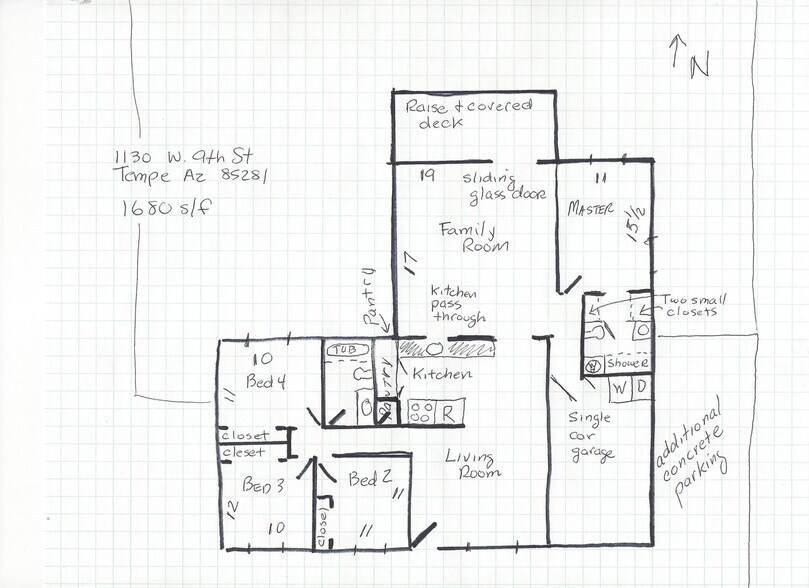 N
Raise + covered
deck
1130 W. 9th St
Tempe Az 85281
1680 s/f
19
sliding
glass door
11
MASTER
15 1/2
Family
Room
17
Pantry
Kitchen
pass
through
Two small
closets
TUB
PANTRY
Kitchen
10
Bed 4
11
R
W
Shower
W D
Single
car
garage
additional
concrete
parking
closet
closet
Living
Room
BED 3
12
10
Bed 2
11
11
closet